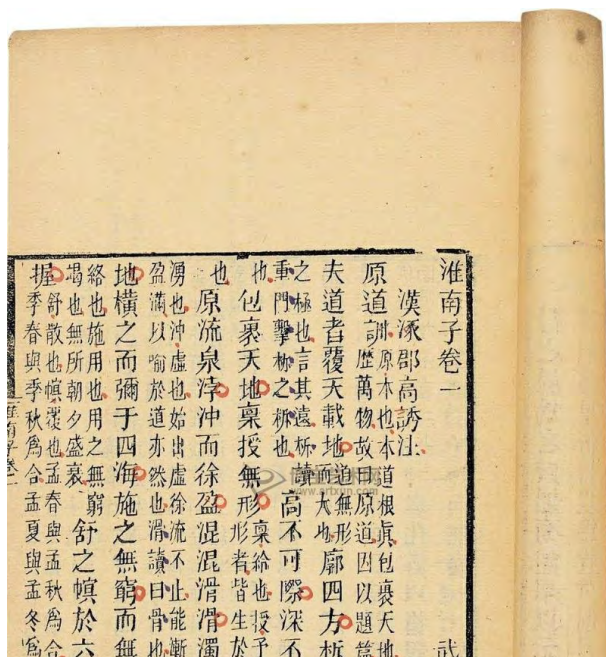 淮南子卷一 武
漢涿郡高誘注
原道訓 原本也本道根眞包裹天地
歷萬物故曰原道因以題篇
夫道者覆天載地 道無形
而大也 廓四方柝
之極也言其遠柝讀
重門擊柝之柝也 高不可際深不
也 包裹天地稟授無形 稟給也授予
形者皆生於
也 原流泉浡沖而徐盈混混滑滑濁
湧也沖虛也始出虛徐流不止能漸
盈滿以喻於道亦然也滑讀曰骨也
地橫之而彌于四海施之無窮而無
絡也施用也用之無窮
竭也無所朝夕盛衰 舒之幎於六
握 舒散也幎覆也孟春與孟秋爲合
季春與季秋爲合孟夏與孟冬爲
淮南子卷一